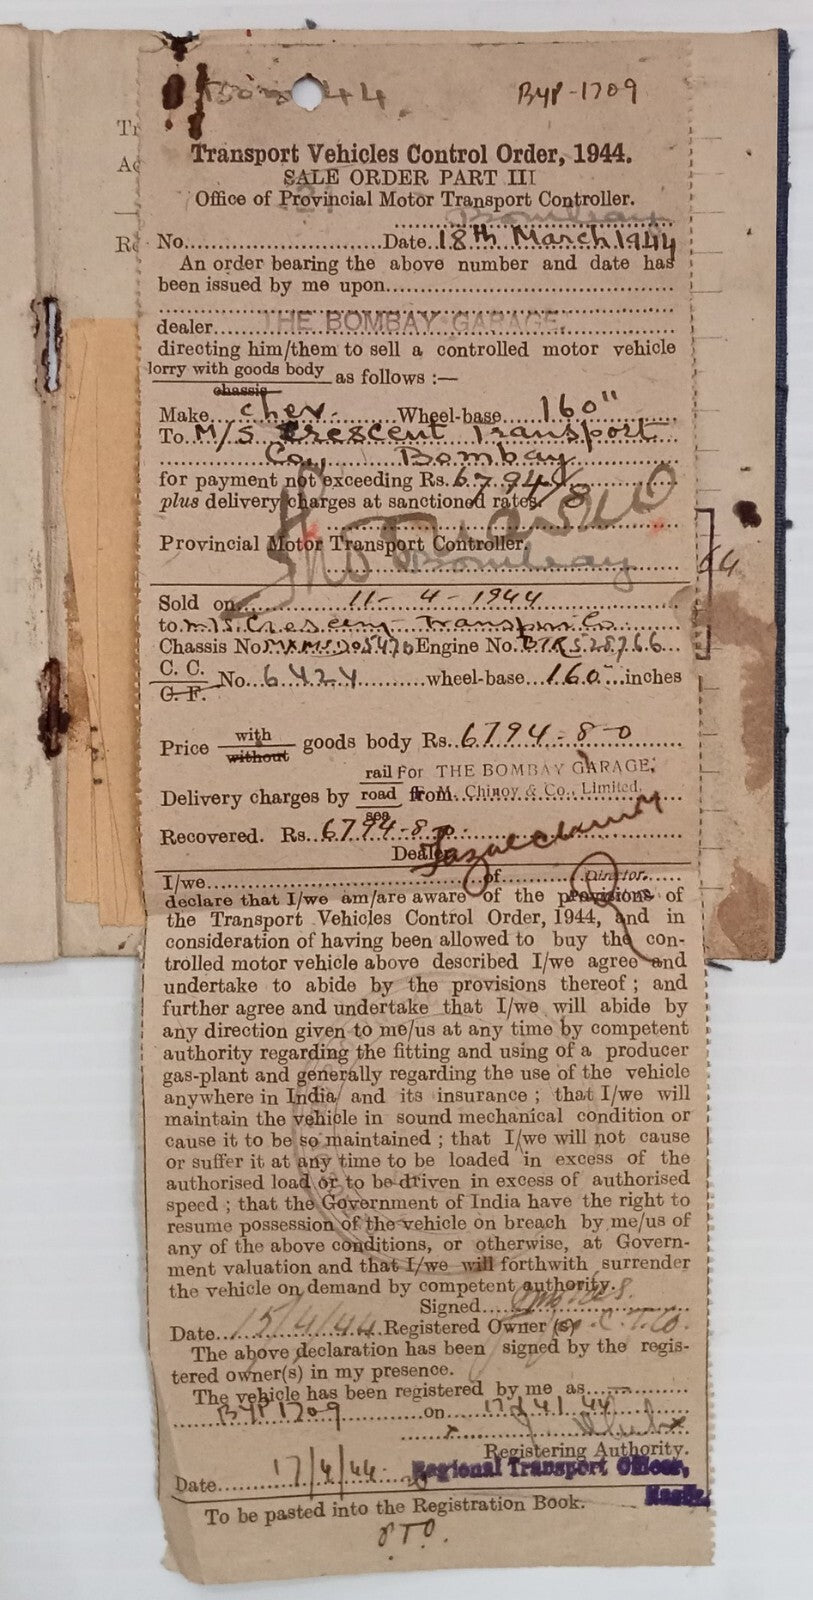 44.
BYP-1709
Tr
Ac
Re
Transport Vehicles Control Order, 1944.
SALE ORDER PART III
Office of Provincial Motor Transport Controller.
Bombay
No..............................Date..18th March 1944
An order bearing the above number and date has
been issued by me upon..........................................
dealer......THE BOMBAY GARAGE,
directing him/them to sell a controlled motor vehicle
lorry with goods body
chassis
as follows :—
Make...chev.......Wheel-base...160"
To M/S Crescent Transport
Coy Bombay
for payment not exceeding Rs.6794/8
plus delivery charges at sanctioned rates.
Provincial Motor Transport Controller.
Bombay
64
Sold on..........11-4-1944
to M/S. Crescent Transport Co.
Chassis No. Engine No.
C. C.
G. F.
No...6424..........wheel-base...160"...inches
Price with
without
goods body Rs..6794-8-0
Delivery charges by rail
road
sea
from
For THE BOMBAY GARAGE,
M. Chinoy & Co., Limited,
Recovered. Rs..6794-8-0
Dealer
Director.
I/we....................................of....................
declare that I/we am/are aware of the provisions of
the Transport Vehicles Control Order, 1944, and in
consideration of having been allowed to buy the con-
trolled motor vehicle above described I/we agree and
undertake to abide by the provisions thereof ; and
further agree and undertake that I/we will abide by
any direction given to me/us at any time by competent
authority regarding the fitting and using of a producer
gas-plant and generally regarding the use of the vehicle
anywhere in India and its insurance ; that I/we will
maintain the vehicle in sound mechanical condition or
cause it to be so maintained ; that I/we will not cause
or suffer it at any time to be loaded in excess of the
authorised load or to be driven in excess of authorised
speed ; that the Government of India have the right to
resume possession of the vehicle on breach by me/us of
any of the above conditions, or otherwise, at Govern-
ment valuation and that I/we will forthwith surrender
the vehicle on demand by competent authority.
Signed....
Date...15/4/44....Registered Owner (s)
The above declaration has been signed by the regis-
tered owner(s) in my presence.
The vehicle has been registered by me as...........
BYP 1709.......on.......17/4/44
Registering Authority.
Date......17/4/44
Regional Transport Officer,
Nasik.
To be pasted into the Registration Book.
P.T.O.